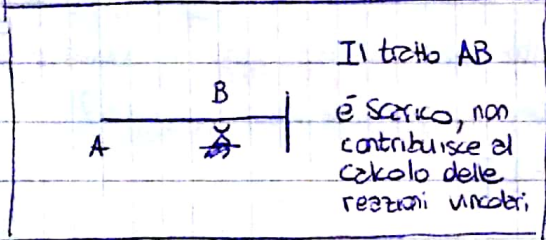 Il tratto AB
B
è scarico, non
A
contribuisce al
calcolo delle
reazioni vincolari.